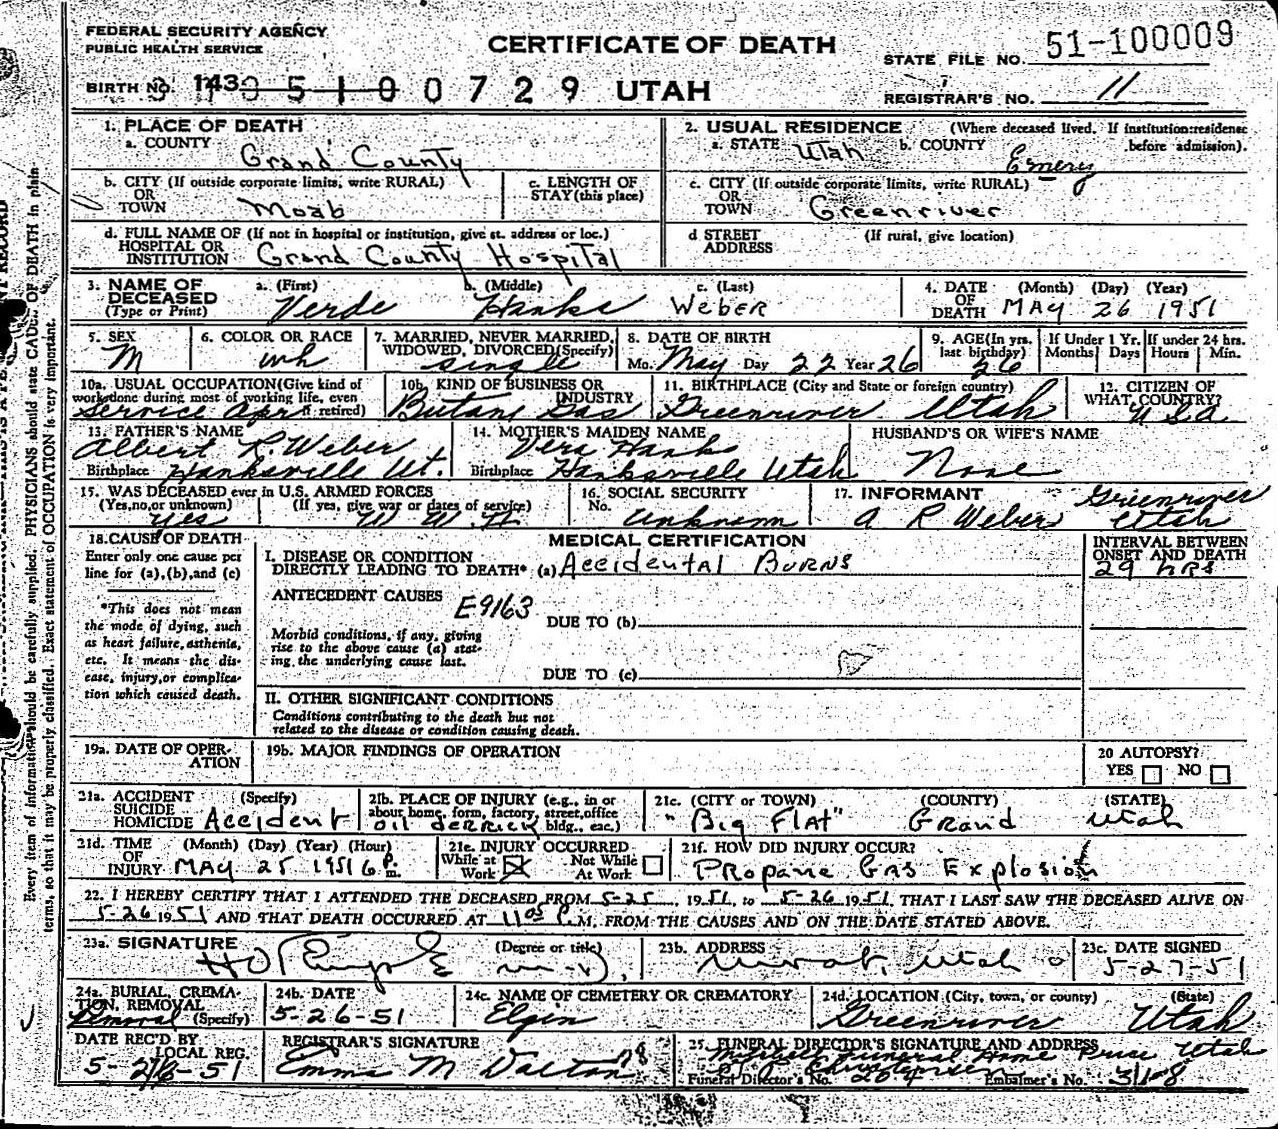 FEDERAL SECURITY AGENCY
PUBLIC HEALTH SERVICE
CERTIFICATE OF DEATH
STATE FILE NO. 51-100009
BIRTH NO. 143 5100729 UTAH
REGISTRAR'S NO. 11
1. PLACE OF DEATH
a. COUNTY Grand County
2. USUAL RESIDENCE (Where deceased lived. If institution:residence before admission).
a. STATE Utah b. COUNTY Emery
b. CITY (If outside corporate limits, write RURAL) OR TOWN Moab
c. LENGTH OF STAY (this place)
c. CITY (If outside corporate limits, write RURAL) OR TOWN Greenriver
d. FULL NAME OF (If not in hospital or institution, give st. address or loc.) HOSPITAL OR INSTITUTION Grand County Hospital
d STREET ADDRESS (If rural, give location)
3. NAME OF DECEASED (Type or Print) a. (First) Verde b. (Middle) Hanks c. (Last) Weber
4. DATE OF DEATH (Month) (Day) (Year) May 26 1951
5. SEX M
6. COLOR OR RACE wh
7. MARRIED, NEVER MARRIED, WIDOWED, DIVORCED(Specify) single
8. DATE OF BIRTH Mo. May Day 22 Year 26
9. AGE(In yrs. last birthday) 26
If Under 1 Yr. Months Days
If under 24 hrs. Hours Min.
10a. USUAL OCCUPATION(Give kind of work done during most of working life, even if retired) Service
10b. KIND OF BUSINESS OR INDUSTRY Butane Gas
11. BIRTHPLACE (City and State or foreign country) Greenriver Utah
12. CITIZEN OF WHAT COUNTRY? USA
13. FATHER'S NAME Albert R. Weber
Birthplace Hanksville Ut.
14. MOTHER'S MAIDEN NAME Vera Hanks
Birthplace Hanksville Utah
HUSBAND'S OR WIFE'S NAME None
15. WAS DECEASED ever in U.S. ARMED FORCES (Yes,no,or unknown) yes (If yes, give war or dates of service) W W II
16. SOCIAL SECURITY No. Unknown
17. INFORMANT A R Weber Greenriver Utah
18. CAUSE OF DEATH
Enter only one cause per line for (a),(b),and (c)
*This does not mean the mode of dying, such as heart failure, asthenia, etc. It means the disease, injury, or complication which caused death.
MEDICAL CERTIFICATION
INTERVAL BETWEEN ONSET AND DEATH
I. DISEASE OR CONDITION DIRECTLY LEADING TO DEATH* (a) Accidental Burns 29 hrs
ANTECEDENT CAUSES E9163
DUE TO (b)
Morbid conditions, if any, giving rise to the above cause (a) stating the underlying cause last.
DUE TO (c)
II. OTHER SIGNIFICANT CONDITIONS
Conditions contributing to the death but not related to the disease or condition causing death.
19a. DATE OF OPERATION
19b. MAJOR FINDINGS OF OPERATION
20 AUTOPSY? YES NO
21a. ACCIDENT SUICIDE HOMICIDE (Specify) Accident
21b. PLACE OF INJURY (e.g., in or about home, form, factory, street,office bldg., eac.) oil derrick
21c. (CITY or TOWN) (COUNTY) (STATE)
"Big Flat" Grand Utah
21d. TIME OF INJURY (Month) (Day) (Year) (Hour) May 25 1951 6 p.m.
21e. INJURY OCCURRED While at Work Not While At Work
21f. HOW DID INJURY OCCUR? Propane Gas Explosion
22. I HEREBY CERTIFY THAT I ATTENDED THE DECEASED FROM 5-25, 1951, to 5-26 1951, THAT I LAST SAW THE DECEASED ALIVE ON
5-26 1951 AND THAT DEATH OCCURRED AT 11 05 P.M. FROM THE CAUSES AND ON THE DATE STATED ABOVE.
23a. SIGNATURE (Degree or title) M.D.
23b. ADDRESS Moab, Utah
23c. DATE SIGNED 5-27-51
24a. BURIAL, CREMATION, REMOVAL (Specify) Removal
24b. DATE 5-26-51
24c. NAME OF CEMETERY OR CREMATORY Elgin
24d. LOCATION (City, town, or county) (State) Greenriver Utah
DATE REC'D BY LOCAL REG. 5-26-51
REGISTRAR'S SIGNATURE Emma M Dalton
25. FUNERAL DIRECTOR'S SIGNATURE AND ADDRESS Mitchell Funeral Home Price Utah
Funeral Director's No. 264 Embalmer's No. 3118
Every item of information should be carefully supplied. PHYSICIANS should state CAUSE OF DEATH in plain
terms, so that it may be properly classified. Exact statement of OCCUPATION is very important.